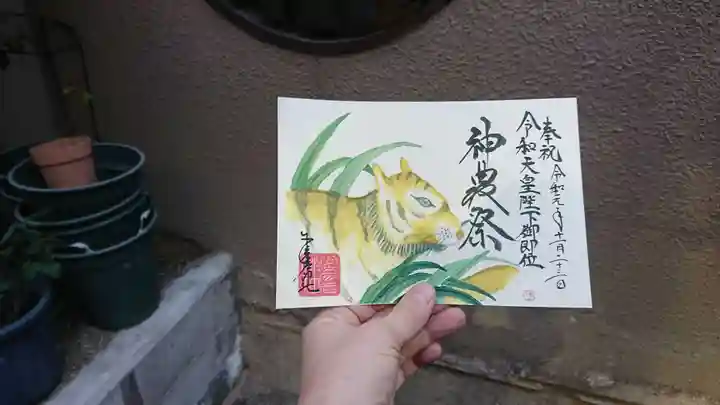 奉祝 令和元年十一月二十二日
令和天皇陛下御即位
神農祭